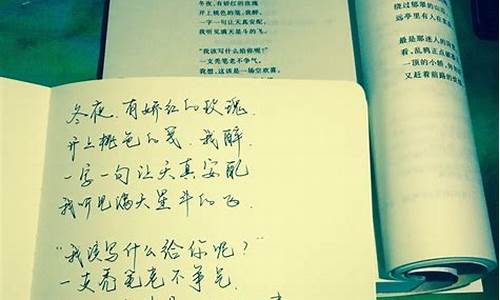 冬夜，有娇红的玫瑰
开上桃色的笺，我醉，
一字一句让天真安配，
我听见满天星斗的飞。
“我该写什么给你呢？”
一支秃笔老不争气。
绕过郁翠的山
远亭里有人在
最是那迷人的
看，乱鸦正点破
一顶的小轿，
又赶着前路的
冬夜，有娇红的玫瑰，
开上桃色的笺，我醉，
一字一句让天真安配
我听见满天星斗的飞.
“我该写什么给你呢？”
一支秃笔老不争气.